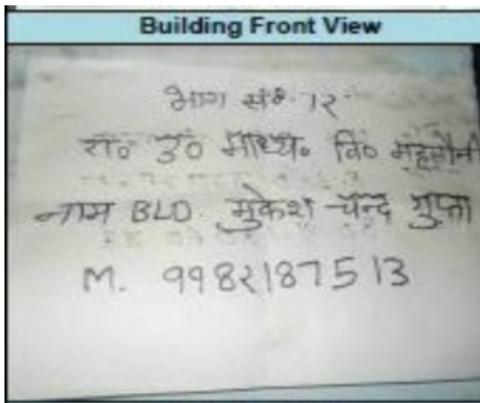 Building Front View
भाग सं० १२
रा० उ० माध्य० वि०
नाम BLO. मुकेश चन्द गुप्ता
M. 9982187513